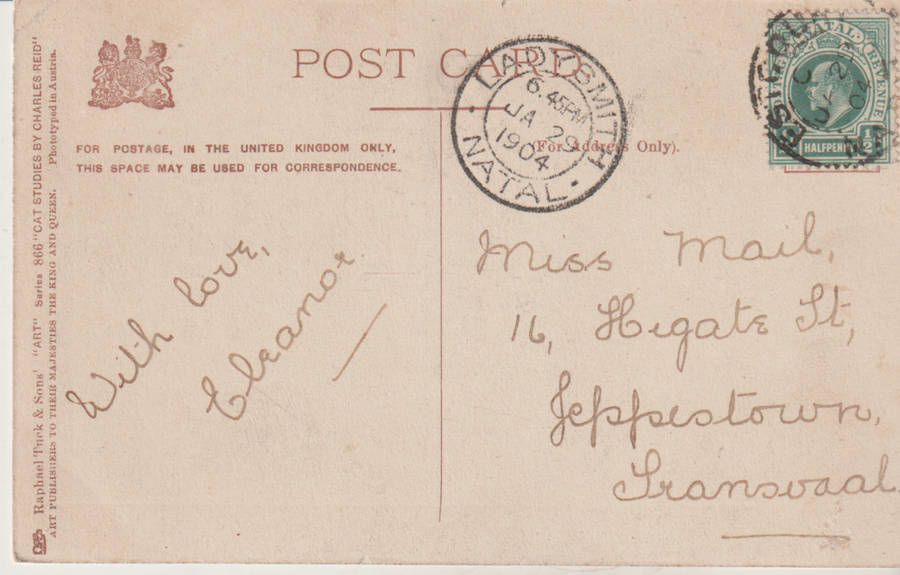 POST CARD
FOR POSTAGE, IN THE UNITED KINGDOM ONLY,
THIS SPACE MAY BE USED FOR CORRESPONDENCE.
(For Address Only).
LADYSMITH
6.45PM
JA 29
1904
NATAL
NATAL
REVENUE
HALFPENNY
½
ESTCOURT
04
With love,
Eleanor.
Miss Mail,
16, Higate St,
Jeppestown,
Transvaal.
Raphael Tuck & Sons' "ART" Series 866 "CAT STUDIES BY CHARLES REID"
ART PUBLISHERS TO THEIR MAJESTIES THE KING AND QUEEN. Phototyped in Austria.